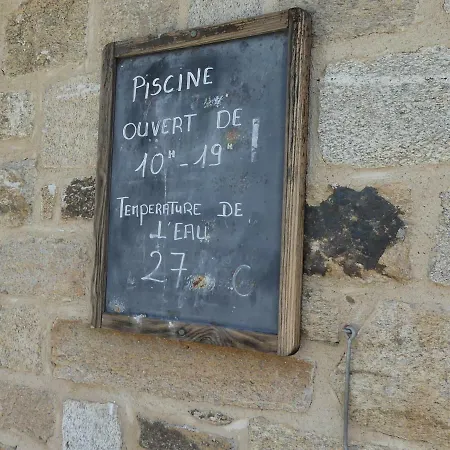 PISCINE
OUVERT DE
10H-19H
TEMPERATURE DE
L'EAU
27 C